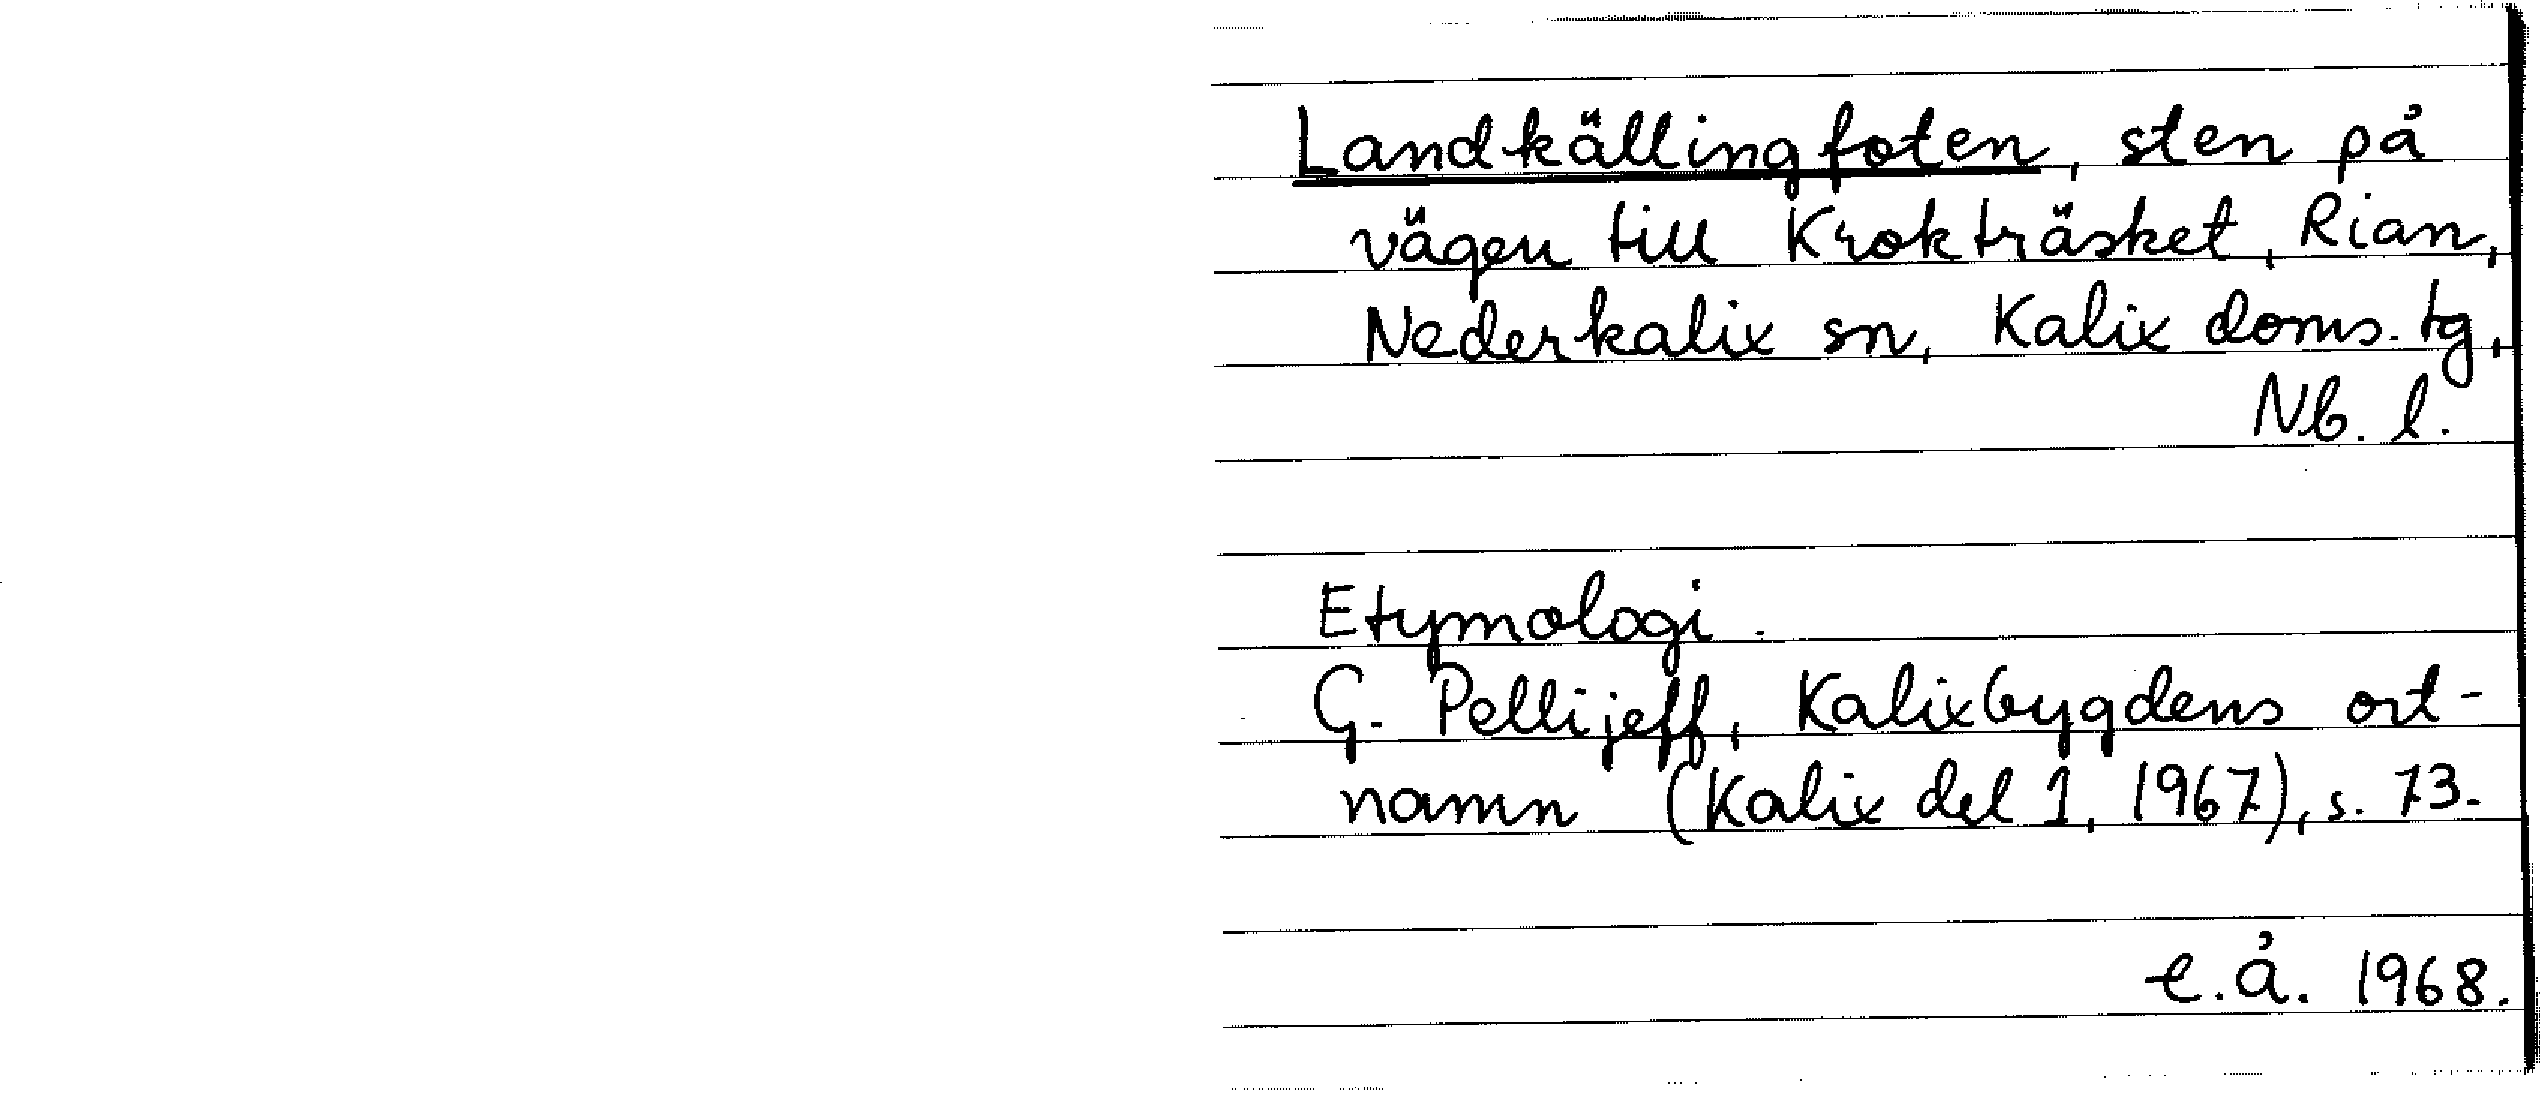 Landkällingfoten, sten på
vägen till Krokträsket, Rian,
Nederkalix sn, Kalix doms. tg,
Nb. l.
Etymologi.
G. Pellijeff, Kalixbygdens ort-
namn (Kalix del 1, 1967), s. 73.
e.å. 1968.